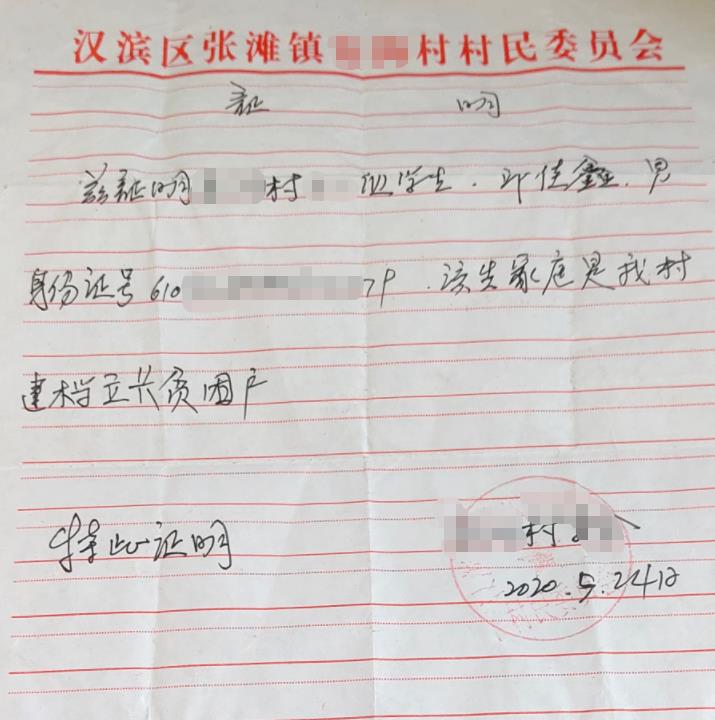 汉滨区张滩镇村村民委员会
证 明
兹证明村组学生.邓佳鑫.男
身份证号61079.该生家庭是我村
建档立长贫困户
特此证明
村
2020.5.24日